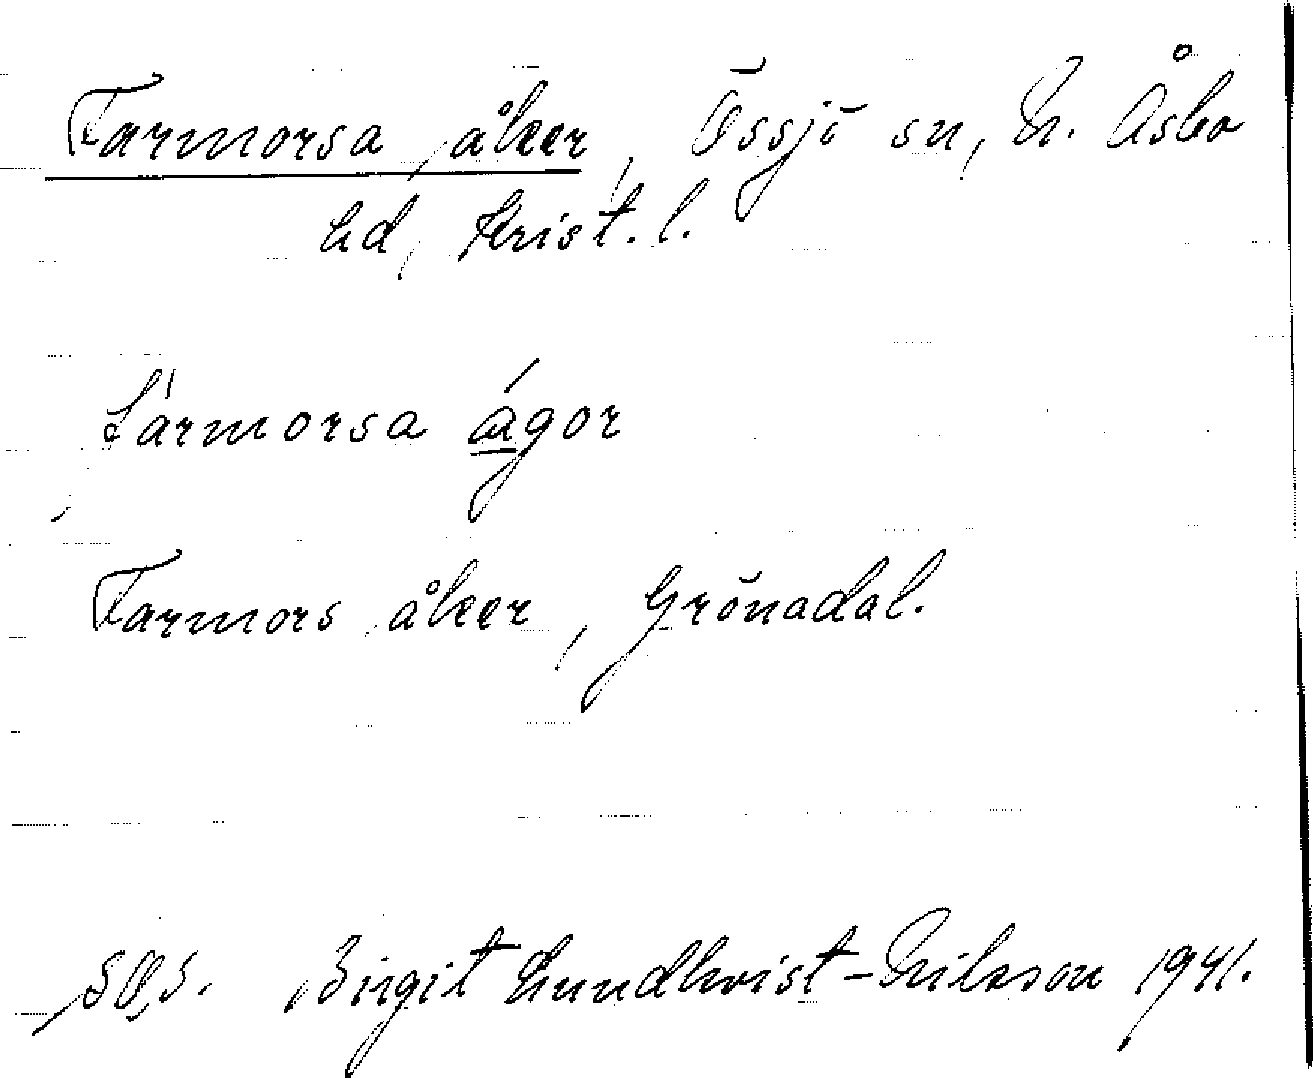 Farmorsa åker, Össjö sn, N. Åsbo
hd, Krist. l.
fármorsa ágor
Farmors åker, Grönadal.
SOS. Birgit Lundkvist-Nilsson 1941.